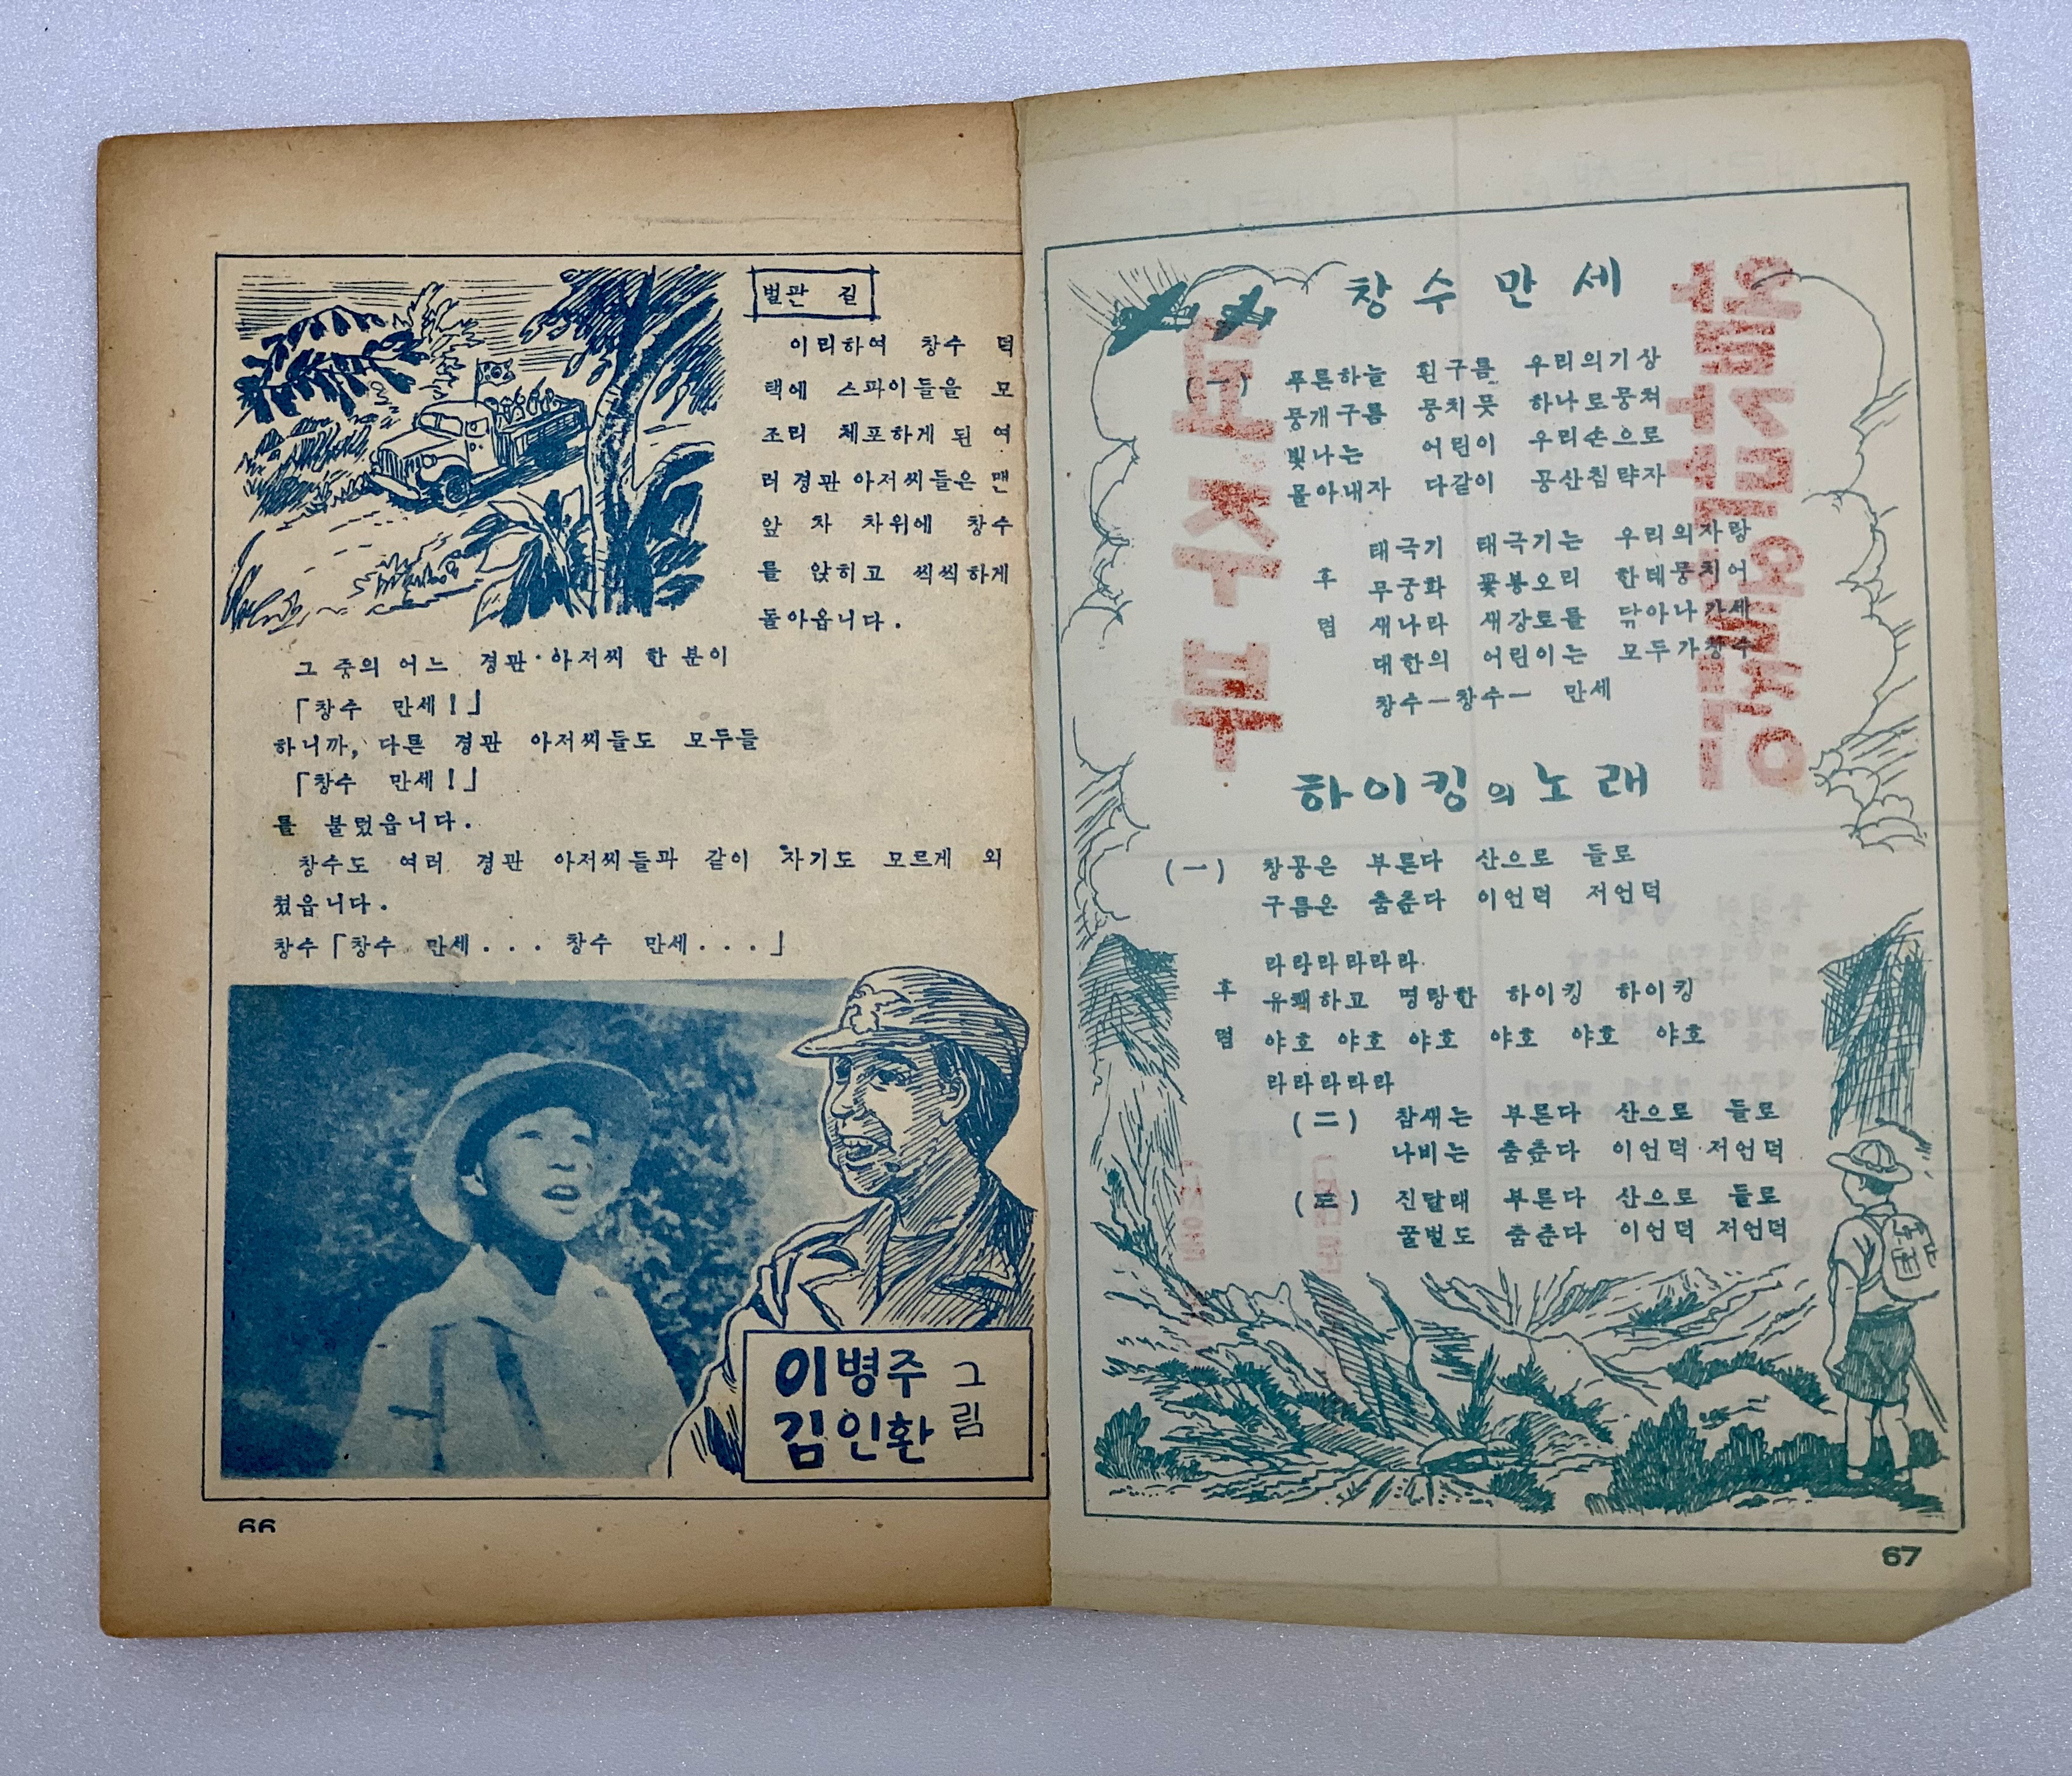 벌판 길
이리하여 창수 덕
택에 스파이들을 모
조리 체포하게 된 여
러 경관 아저씨들은 맨
앞 차 차위에 창수
를 앉히고 씩씩하게
돌아옵니다.
그 중의 어느 경관 아저씨 한 분이
「창수 만세!」
하니까, 다른 경관 아저씨들도 모두들
「창수 만세!」
를 불렀읍니다.
창수도 여러 경관 아저씨들과 같이 자기도 모르게 외
쳤읍니다.
창수「창수 만세... 창수 만세...」
이병주
김인환
그림
66
창수만세
(一) 푸른하늘 흰구름 우리의기상
뭉개구름 뭉치뭇 하나로뭉쳐
빛나는 어린이 우리손으로
몰아내자 다같이 공산침략자
후렴
태극기 태극기는 우리의자랑
무궁화 꽃봉오리 한데뭉치어
새나라 새강토를 닦아나가세
대한의 어린이는 모두가창수
창수—창수— 만세
하이킹의 노래
(一) 창공은 부른다 산으로 들로
구름은 춤춘다 이언덕 저언덕
후렴
라랑라라라라.
유쾌하고 명랑한 하이킹 하이킹
야호 야호 야호 야호 야호 야호
라라라라라
(二) 참새는 부른다 산으로 들로
나비는 춤춘다 이언덕 저언덕
(三) 진달래 부른다 산으로 들로
꿀벌도 춤춘다 이언덕 저언덕
67